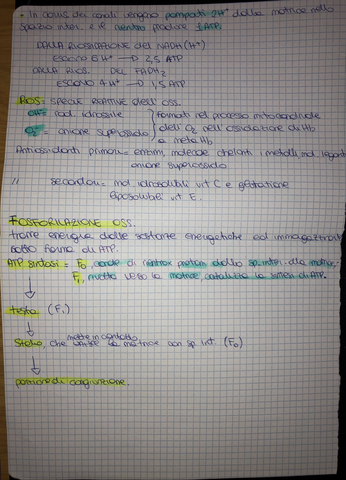 • In ognuno dei canali vengono pompati 2H⁺ dalla matrice nello
spazio inter. e il rientro produce 1ATP.
DALLA RIOSSIDAZIONE del NADH(H⁺)
ESCONO 6H⁺ → 2,5 ATP
DALLA RIOS. DEL FADH₂
ESCONO 4H⁺ → 1,5 ATP
ROS: SPECIE REATTIVE dell'OSS.
OH• = rad. idrossile
O₂⁻ = anione superossido
formati nel processo mitocondriale
dell'O₂ nell'ossidazione di Hb
a meta Hb
Antiossidanti primari = enzimi, molecole chelanti i metalli, mol. legant
anione superossido
// secondari = mol. idrosolubili vit C e glutatione
liposolubili vit E.
FOSFORILAZIONE OSS.
trarre energia dalle sostanze energetiche ed immagazzinar
sotto forma di ATP.
ATP sintasi = F₀, canale di rientro protoni dallo sp. inter. alla matrice;
F₁, rivolto verso la matrice, catalizza la sintesi di ATP.
testa (F₁)
Stelo, che mette in contatto la matrice con sp. int. (F₀)
porzione di congiunzione.